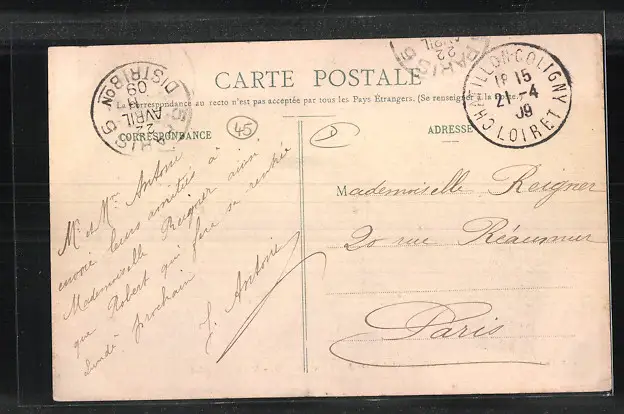 CARTE POSTALE
La Correspondance au recto n'est pas acceptée par tous les Pays Étrangers. (Se renseigner à la Poste.)
CORRESPONDANCE
45
Mr et Mme Antoine
envoie leurs amitiés à
Mademoiselle Reigner ainsi
que Robert qui fera sa rentrée
Lundi prochain
E. Antoine
ADRESSE
Mademoiselle Reigner
20 rue Réaumur
Paris
PARIS 5
22
AVRIL
09
DISTRIBON
PARIS 5
22
AVRIL
CHATILLON-COLIGNY
15
21-4
09
LOIRET